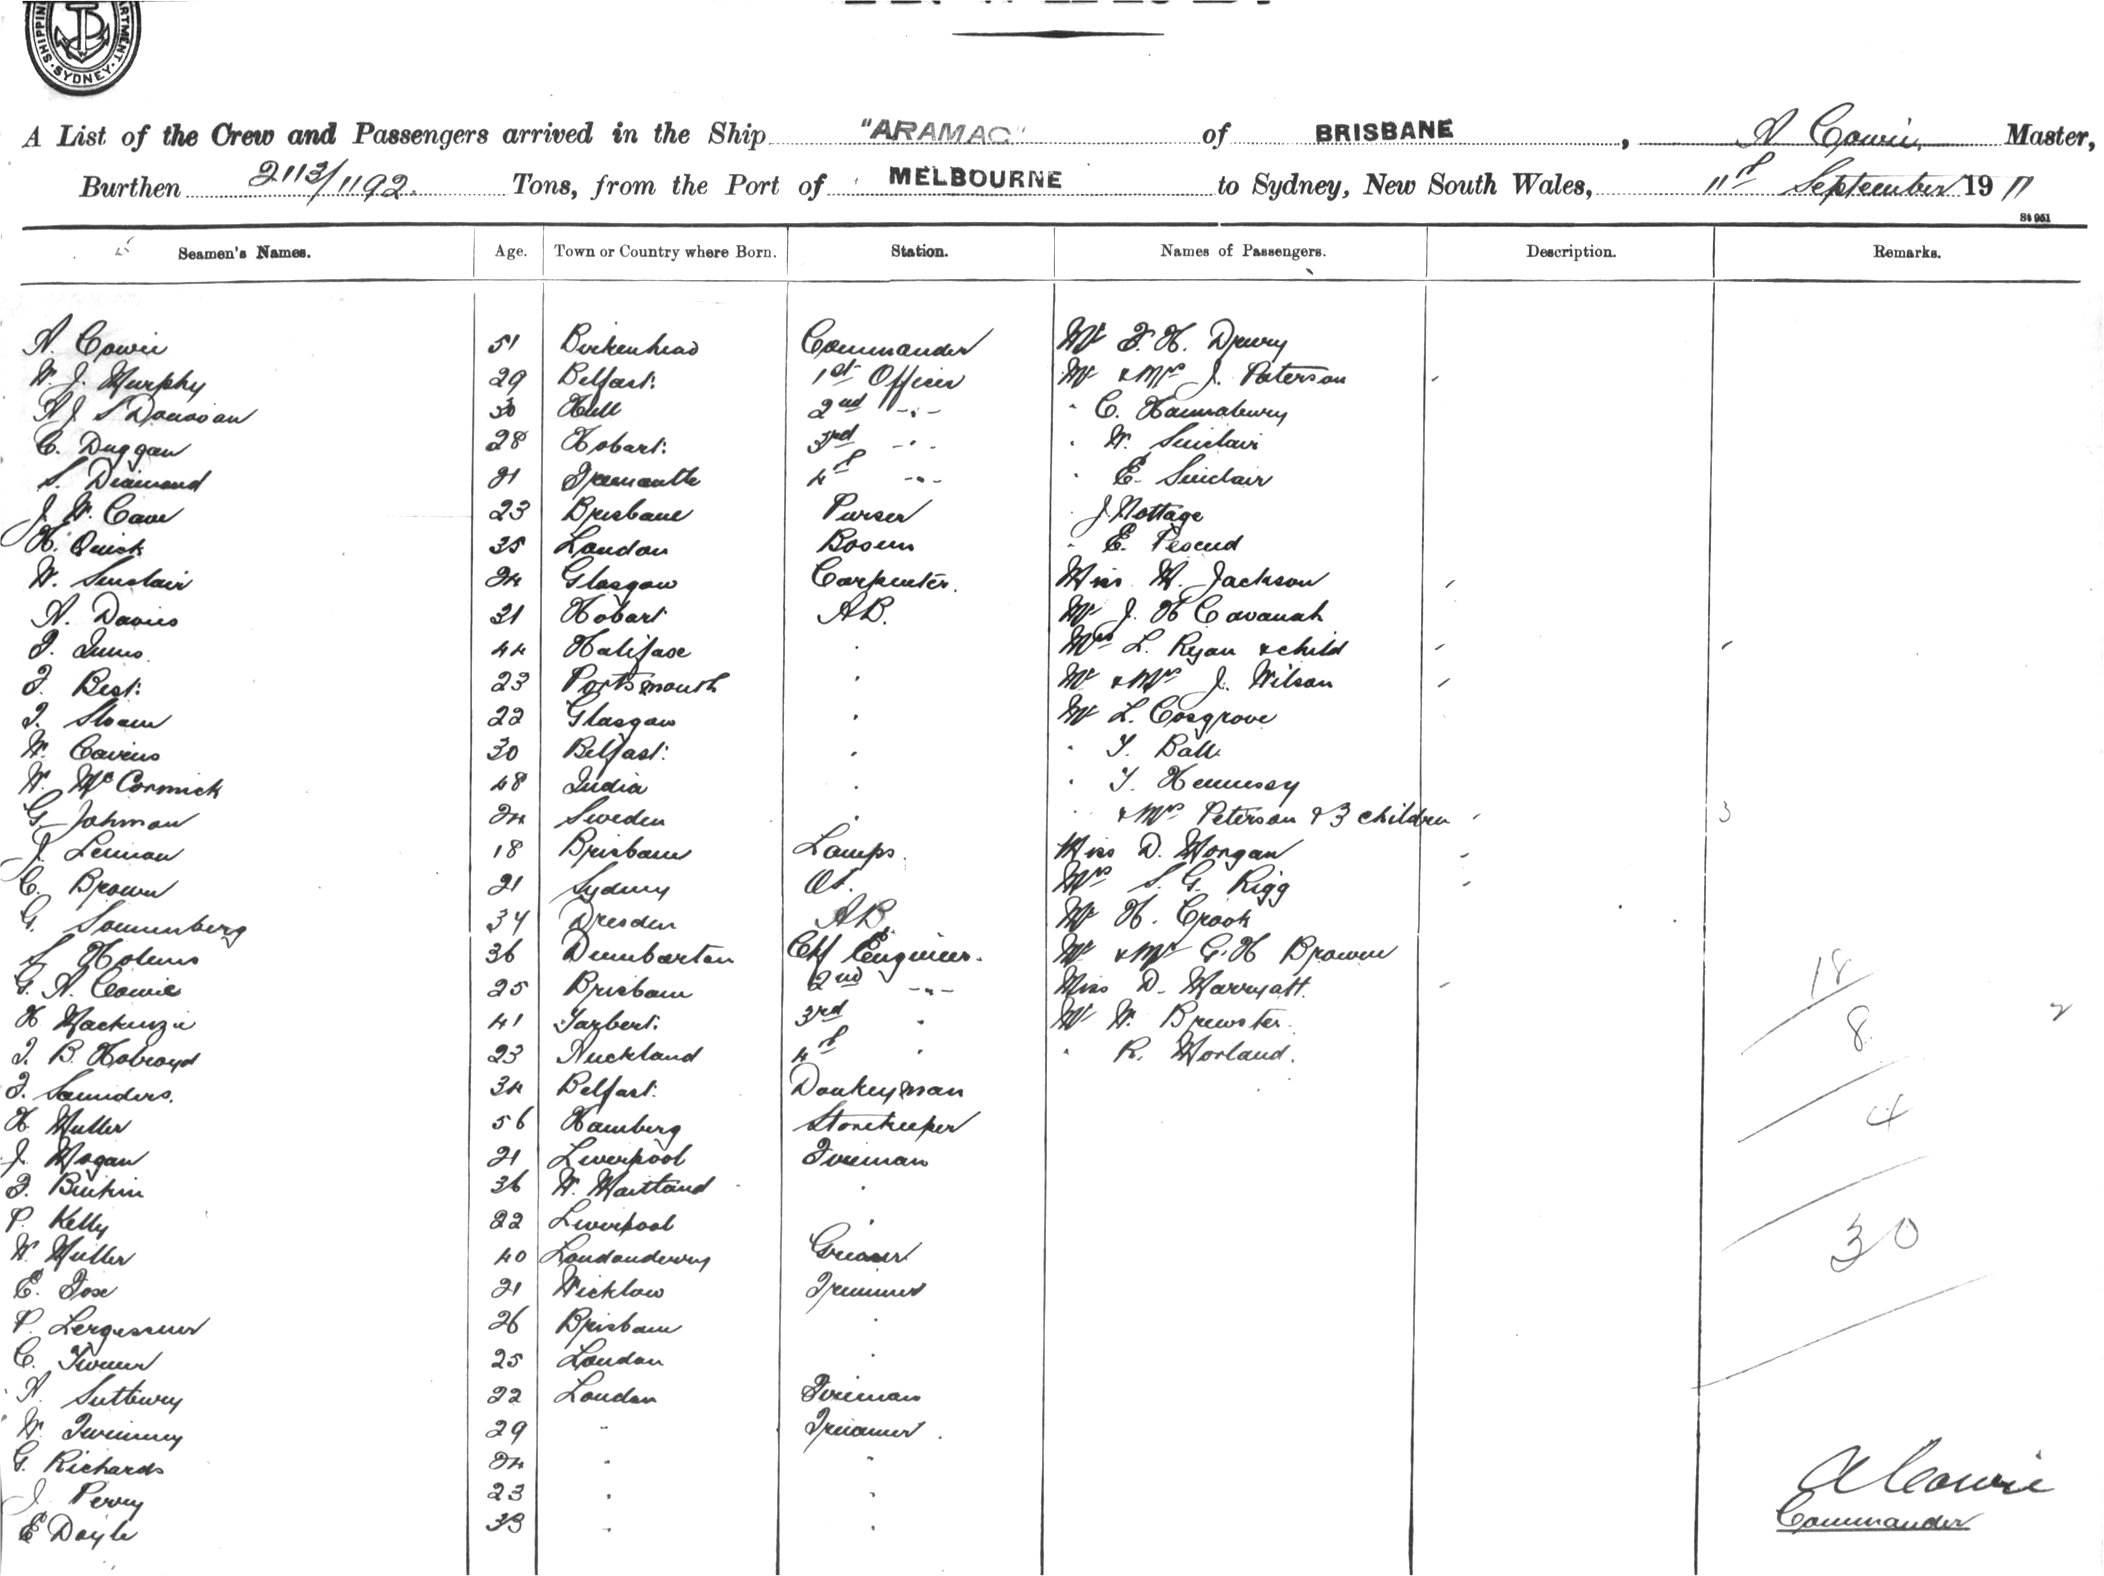 SHIPPING DEPARTMENT. SYDNEY.
A List of the Crew and Passengers arrived in the Ship "ARAMAC" of BRISBANE, A Cowie, Master,
Burthen 2113/1192. Tons, from the Port of MELBOURNE to Sydney, New South Wales, 11th September 1911
St 951
Seamen's Names. Age. Town or Country where Born. Station. Names of Passengers. Description. Remarks.
A. Cowie 51 Birkenhead Commander Mr F. H. Drury
W. J. Murphy 29 Belfast. 1st Officer Mr & Mrs J. Paterson
A J S Donovan 30 Hull 2nd -.- " C. Hannabury
C. Duggan 28 Hobart. 3rd -.- " W. Sinclair
S. Diamond 21 Fremantle 4th -.- " E. Sinclair
J. W. Cave 23 Brisbane Purser " J. Nottage
H. Quick 35 London Bosun " E. Pescud
W. Sinclair 24 Glasgow Carpenter. Miss M. Jackson
A. Davies 31 Hobart AB. Mr J. H Cavanah
44 Halifax " Mrs L. Ryan & child
F. Best. 23 Portsmouth " Mr & Mrs J. Wilson
J. Sloan 22 Glasgow " Mr L. Cosgrove
W. 30 Belfast. " " T. Ball
W. McCormick 48 India " " T. Hennessy
G. Johnson 24 Sweden " " & Mrs Peterson & 3 children 3
J. Lennon 18 Brisbane Lamps. Miss D. Morgan
C. Brown 21 Sydney OS. Mrs S. G. Rigg
G. Sonnenberg 34 Dresden AB. Mr H. Crook
S. 36 Dumbarton Chf Engineer. Mr & Mrs G. H Brown
G. A. Cowie 25 Brisbane 2nd -.- Miss D. Marryatt. 18
H Mackenzie 41 Tarbert. 3rd " Mr W. Brewster. 8 2
J. B. Holroyd 23 Auckland 4th " " R. Morland.
F. Saunders. 34 Belfast. Donkeyman
H Muller 56 Hamburg Storekeeper 4
J. Hogan 21 Liverpool Fireman
36 W. Maitland "
P. Kelly 22 Liverpool " 30
W. Miller 40 Londonderry Greaser
E. Fox 21 Wicklow Trimmer
P. 26 Brisbane "
C. Turner 25 London "
A. 22 London Fireman
W. 29 " Trimmer.
G. Richards 24 " "
J. Perry 23 " "
E Doyle 33 " "
A Cowie
Commander